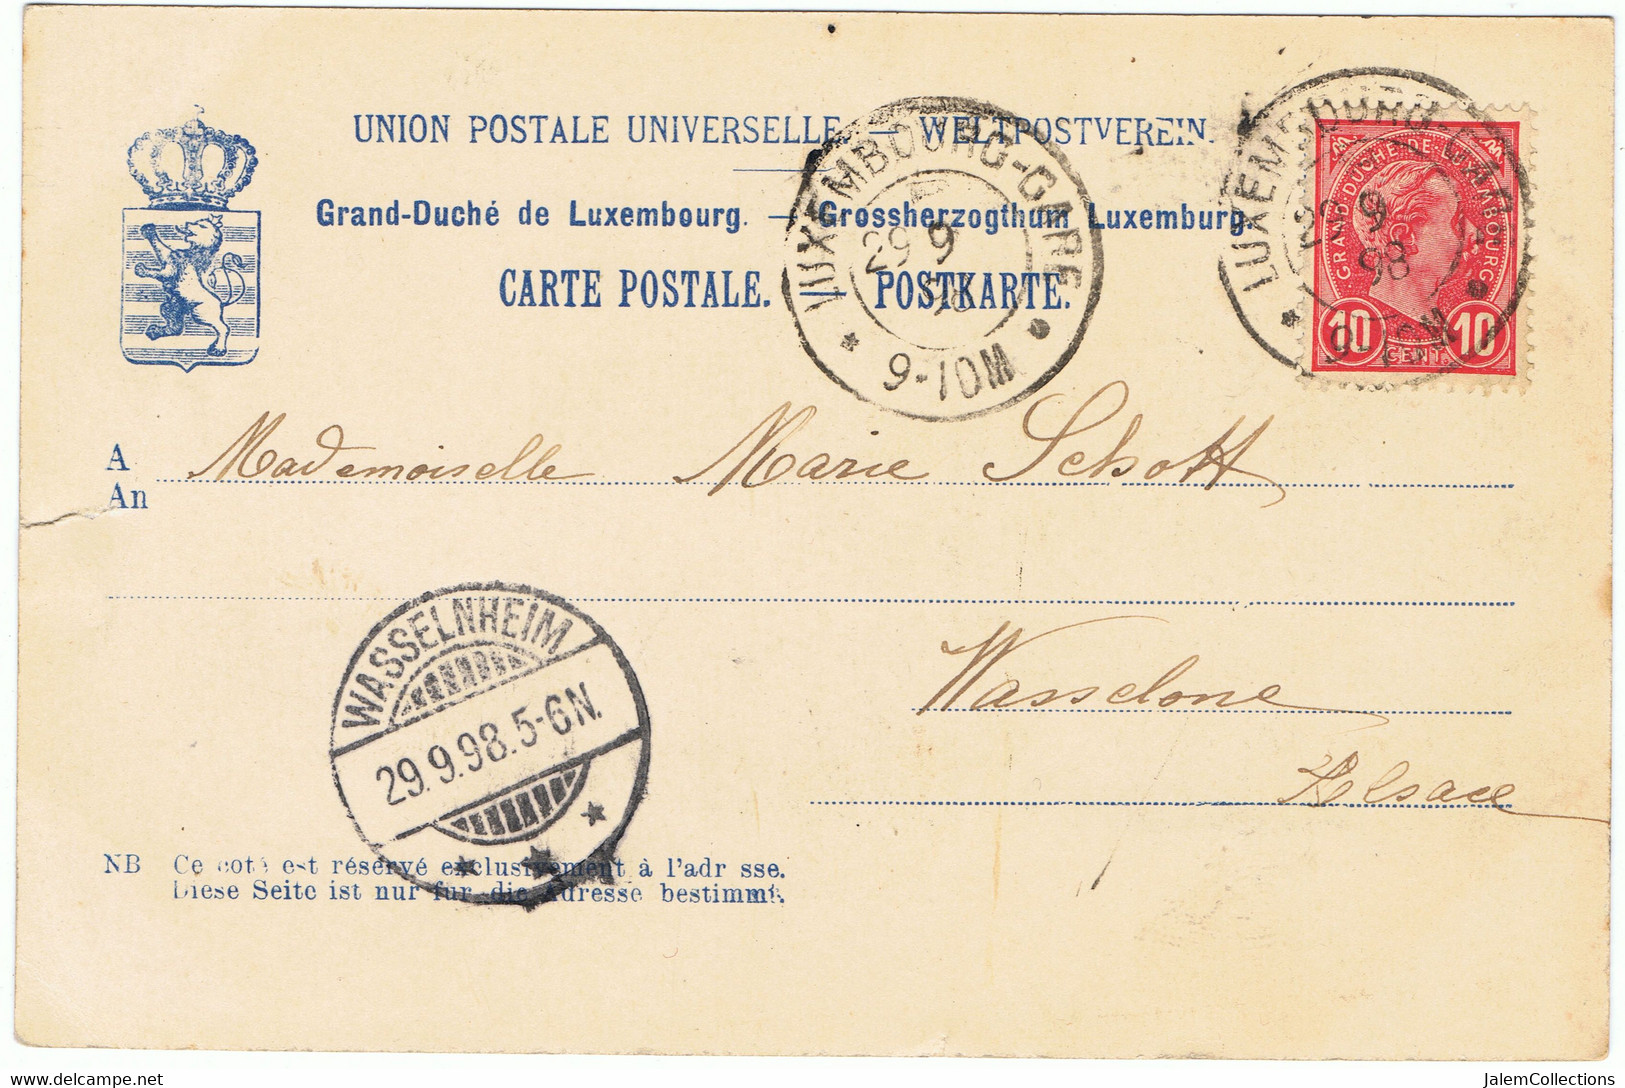 UNION POSTALE UNIVERSELLE. — WELTPOSTVEREIN.
Grand-Duché de Luxembourg. — Grossherzogthum Luxemburg.
CARTE POSTALE. — POSTKARTE.
LUXEMBOURG-GARE
29 9
98
9-10M
LUXEMBOURG-GARE
29 9
98
9-10M
GRAND DUCHÉ DE LUXEMBOURG
10 10
CENT.
A Mademoiselle Marie Schott
An
Wasselone
Alsace
WASSELNHEIM
29.9.98.5-6N.
NB Ce coté est réservé exclusivement à l'adr sse.
Diese Seite ist nur fur die Adresse bestimmt.
www.delcampe.net
JalemCollections